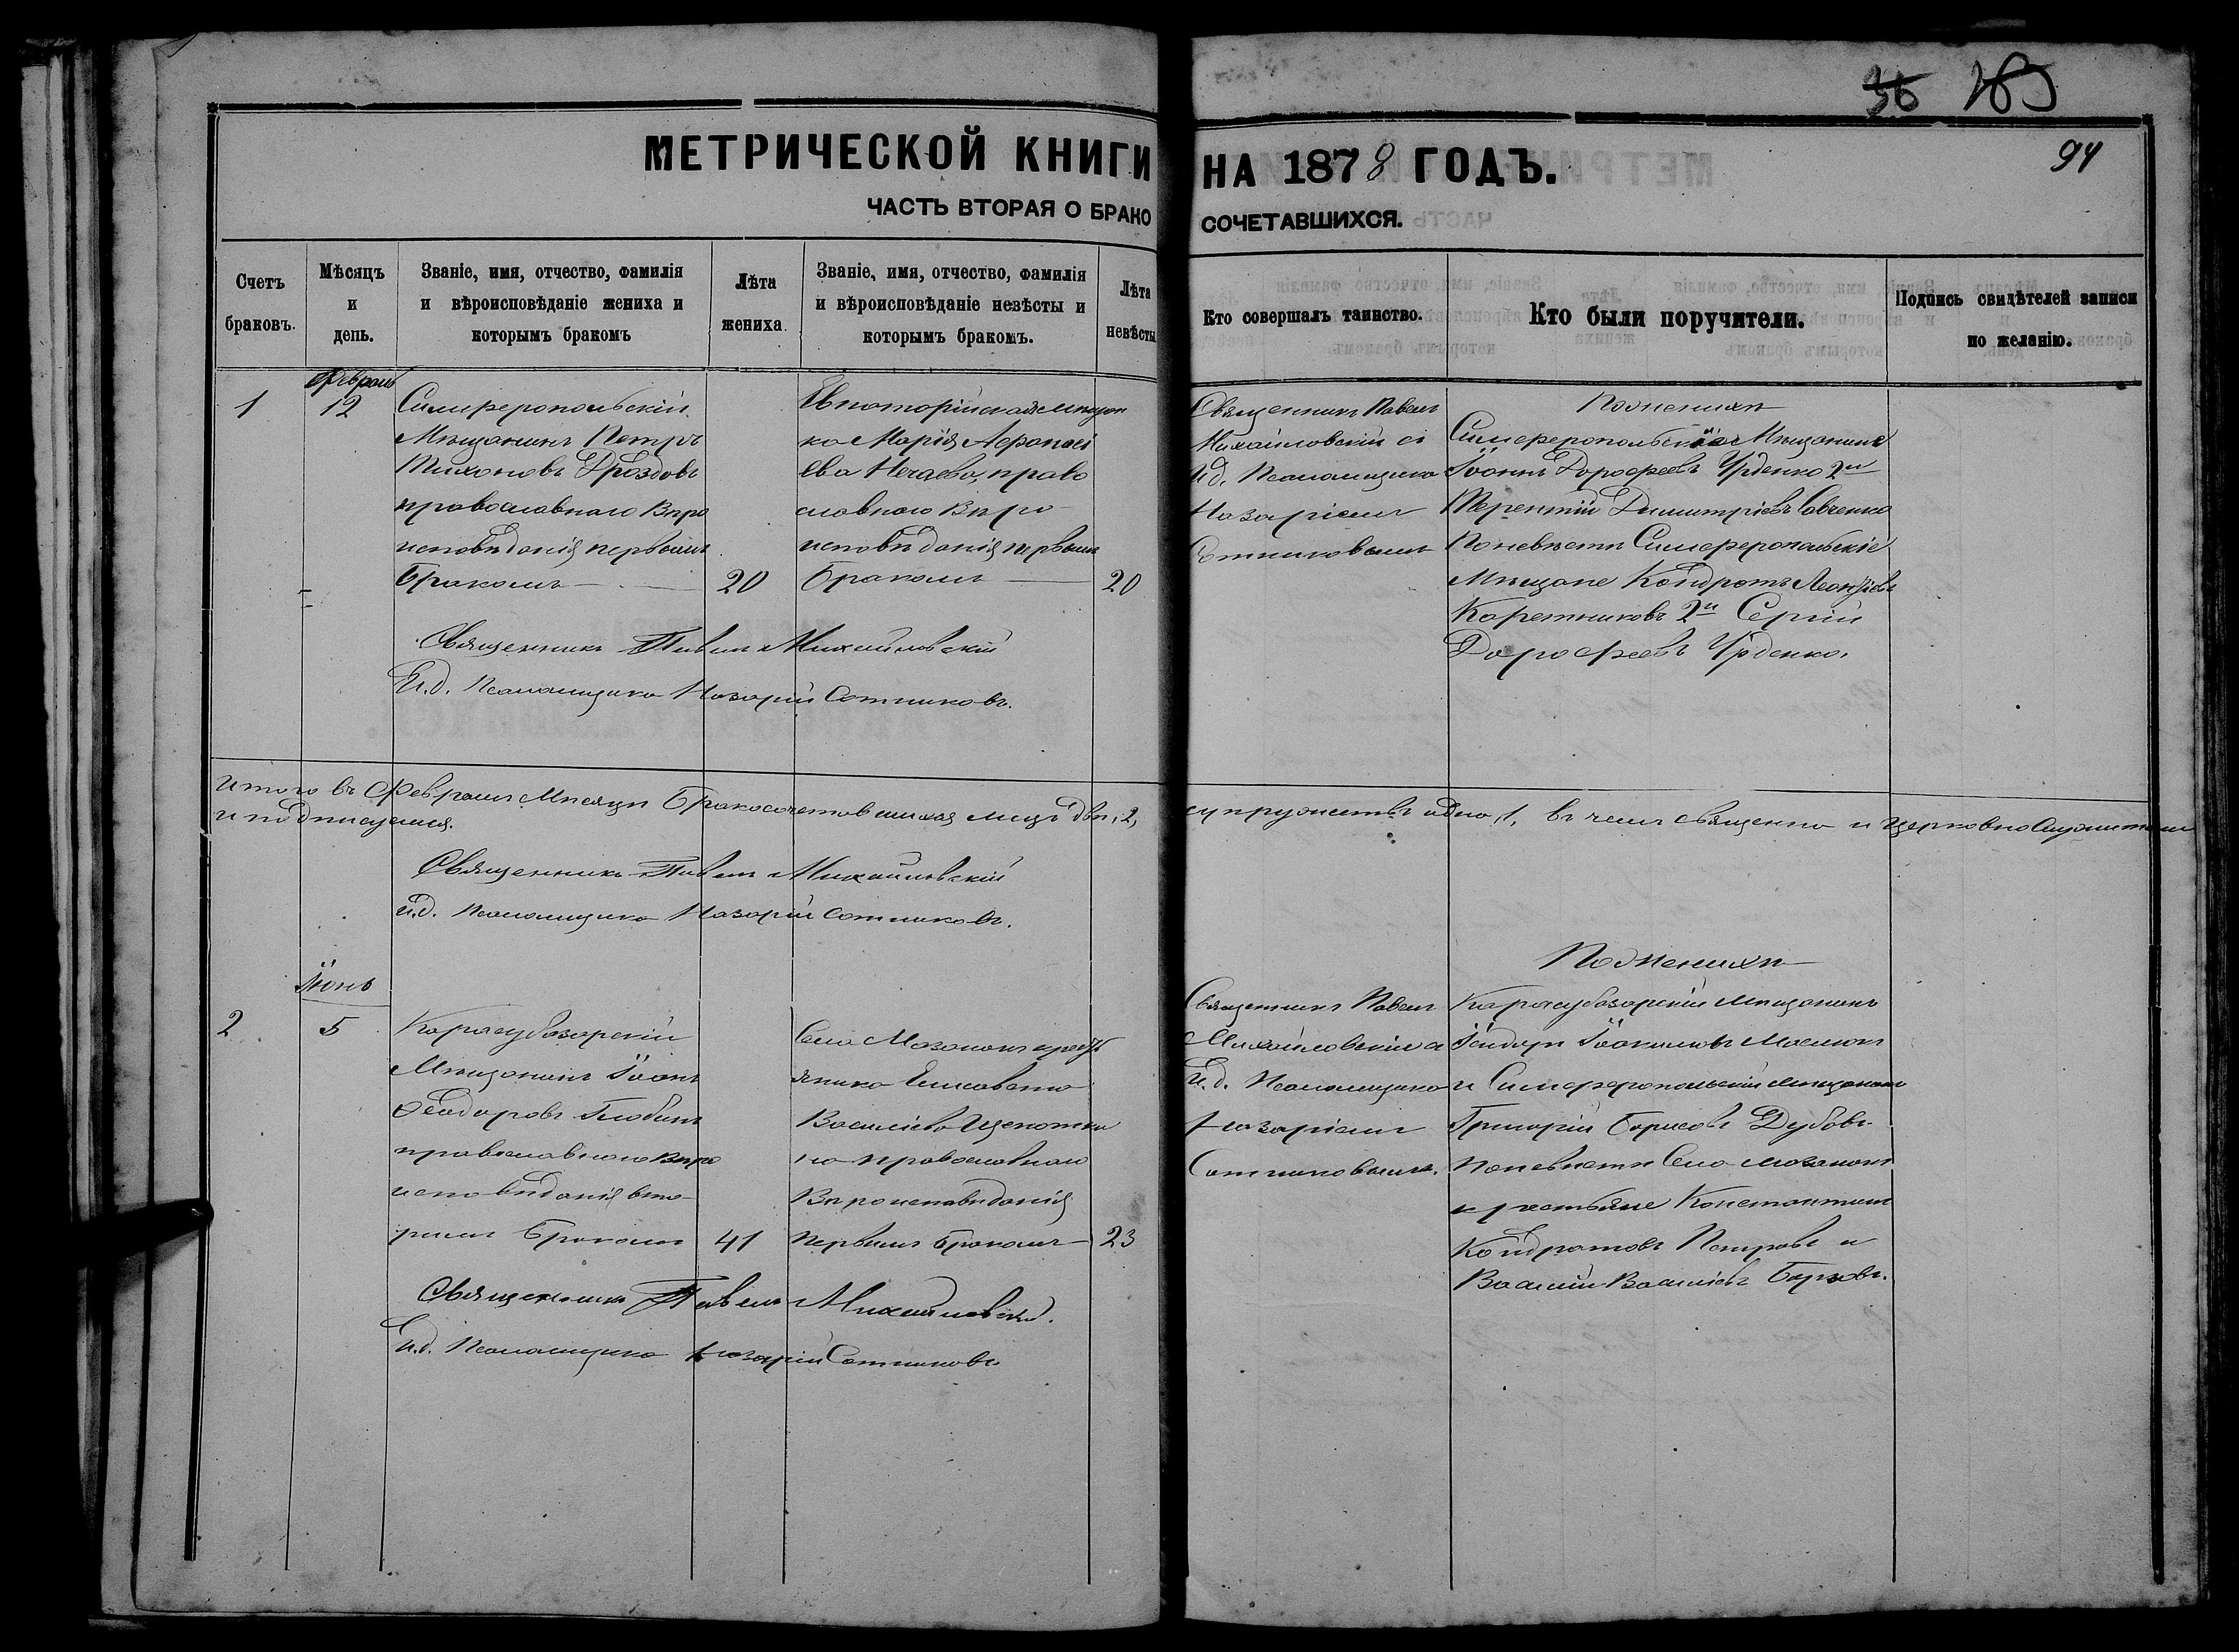 36 183
94
МЕТРИЧЕСКОЙ КНИГИ НА 1878 ГОДЪ.
ЧАСТЬ ВТОРАЯ О БРАКОСОЧЕТАВШИХСЯ.
Счетъ браковъ.
Мѣсяцъ и день.
Званіе, имя, отчество, фамилія и вѣроисповѣданіе жениха и которымъ бракомъ
Лѣта жениха.
Званіе, имя, отчество, фамилія и вѣроисповѣданіе невѣсты и которымъ бракомъ.
Лѣта невѣсты
Кто совершалъ таинство.
Кто были поручители.
Подпись свидѣтелей записи по желанію.
1
Февраль
12
Симферопольскій
Мѣщанинъ Петръ
Тихоновъ Дроздовъ
православнаго Вѣро
исповѣданія первымъ
Бракомъ
20
Евпаторійская мѣщан
ка Марія Афанасі
ева Нечаева, право
славнаго Вѣро
исповѣданія первымъ
Бракомъ
20
Священникъ Павелъ
Михайловскій съ
И.д. Псаломщика
Назаріемъ
Сотниковымъ
По женихѣ
Симферопольскіе Мѣщане
Іоаннъ Дорофеевъ Урденко 2й
Терентій Димитріевъ Савченко
По невѣстѣ Симферопольскіе
Мѣщане Кондратъ Леонтіевъ
Каретниковъ 2й Сергій
Дорофеевъ Урденко.
Священникъ Павелъ Михайловскій
И.д. Псаломщика Назарій Сотниковъ.
Итого въ Февралѣ Мѣсяцѣ Бракосочетавшихся лицъ двѣ, 2, супружествъ одно, 1, въ чемъ священно и церковнослужители
и подписуемся.
Священникъ Павелъ Михайловскій
И.д. Псаломщика Назарій Сотниковъ.
2
Іюнь
5
Карасубазарскій
Мѣщанинъ Іоаннъ
Феодоровъ
православнаго Вѣро
исповѣданія вто
рымъ Бракомъ
41
Села Мазанки кресть
янка Елисавета
Василіева
на православнаго
Вѣроисповѣданія
Первымъ Бракомъ
23
Священникъ Павелъ
Михайловскій съ
И.д. Псаломщика
Назаріемъ
Сотниковымъ.
По женихѣ
Карасубазарскій Мѣщанинъ
Іоакимовъ
и Симферопольскій Мѣщанинъ
Григорій Борисовъ Дубовъ
По невѣстѣ Села Мазанки
крестьяне Константинъ
Кондратовъ Петровъ и
Василій Василіевъ
Священникъ Павелъ Михайловскій.
И.д. Псаломщика Назарій Сотниковъ